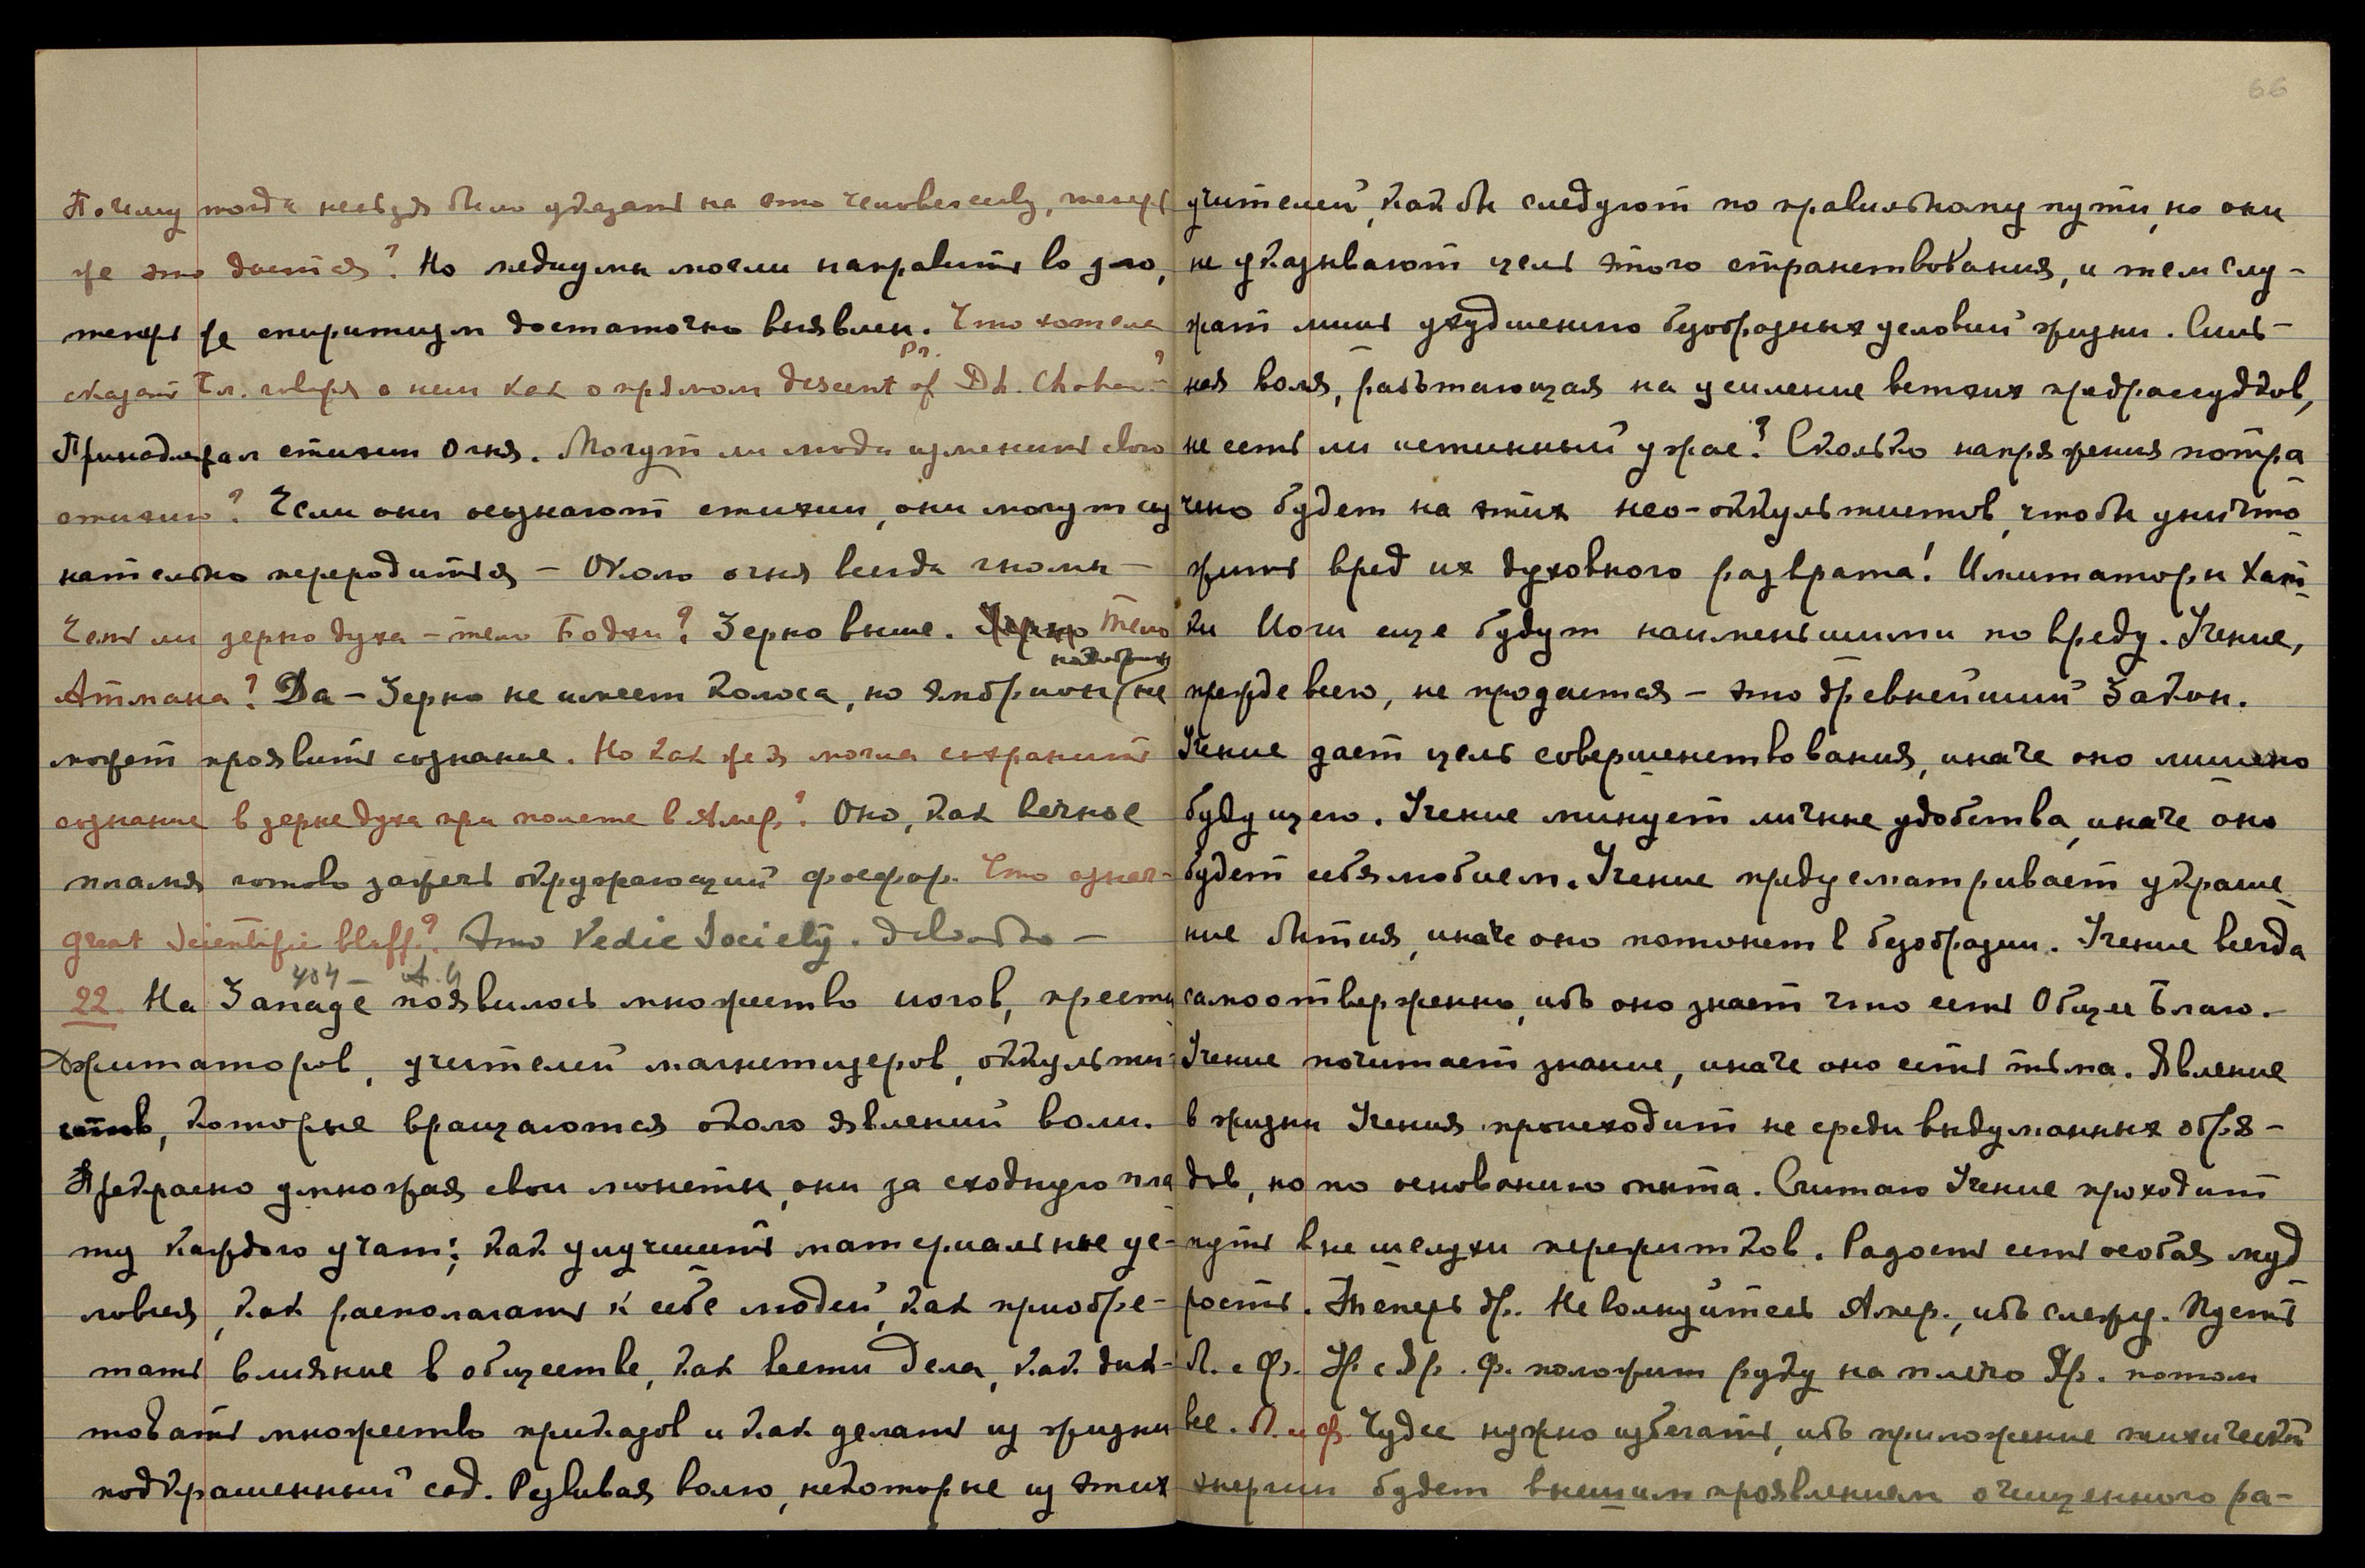 Почему тогда нельзя было указать на это человечеству, теперь
же это дается? Но медиумы могли направить во зло,
теперь же спиритизм достаточно выявлен. Что хотела
Рг.
сказать Бл. говоря о нем как о прямом descent of Dh. Chohan?
Принадлежал стихии Огня. Могут ли люди изменить свою
стихию? Если они осознают стихии, они могут соз-
нательно переродиться – Около огня всегда гномы –
Есть ли зерно духа – тело Бодхи? Зерно выше. Тело
Атмана? Да – Зерно не имеет колоса, но эмбрион не
может проявить сознание. Но как же я могла сохранить
сознание в зерне духа при полете в Амер.? Оно, как вечное
пламя готово зажечь окружающий фосфор. Что означ-
great Scientific bluff? Это Vedic Society.
404 – А.Й
22. На Западе появилось множество иогов, прести
джитаторов, учителей магнетизеров, оккульти-
стов, которые вращаются около явлений воли.
Прекрасно умножая свои монеты, они за сходную пла-
ту каждого учат; как улучшить материальные ус-
ловия, как располагать к себе людей, как приобре-
тать влияние в обществе, как вести дела, как дик-
товать множество приказов и как делать из жизни
подкрашенный сад. Развивая волю, некоторые из этих
66
учителей, как бы следуют по правильному пути, но они
не указывают цель этого странствования, и тем слу-
жат лишь ухудшению безобразных условий жизни. Силь-
ная воля, работающая на усиление ветхих предрассудков,
не есть ли истинный ужас? Сколько напряжения потра-
чено будет на этих нео-оккультистов, чтобы уничто-
жить вред их духовного разврата! Имитаторы Хат-
ки Йоги еще будут наименьшими по вреду. Учение,
прежде всего, не продается – это древнейший Закон.
Учение дает цель совершенствования, иначе оно лишено
будущего. Учение минует личные удобства, иначе оно
будет себялюбием. Учение предусматривает украше-
ние бытия, иначе оно потонет в безобразии. Учение всегда
самоотверженно, ибо оно знает что есть Общее Благо.–
Учение почитает знание, иначе оно есть тьма. Явление
в жизни Учения происходит не среди выдуманных обря-
дов, но по основанию опыта. Считаю Учение проходит
путь вне шелухи пережитков. Радость есть особая муд-
рость. Теперь др. Не волнуйтесь Амер., ибо слежу. Пусть
Л. с Ф. Ф. положит руку на плечо Яр. потом
все. Л. и Ф. Чудес нужно избегать, ибо приложение психической
энергии будет внешним проявлением очищенного ра-